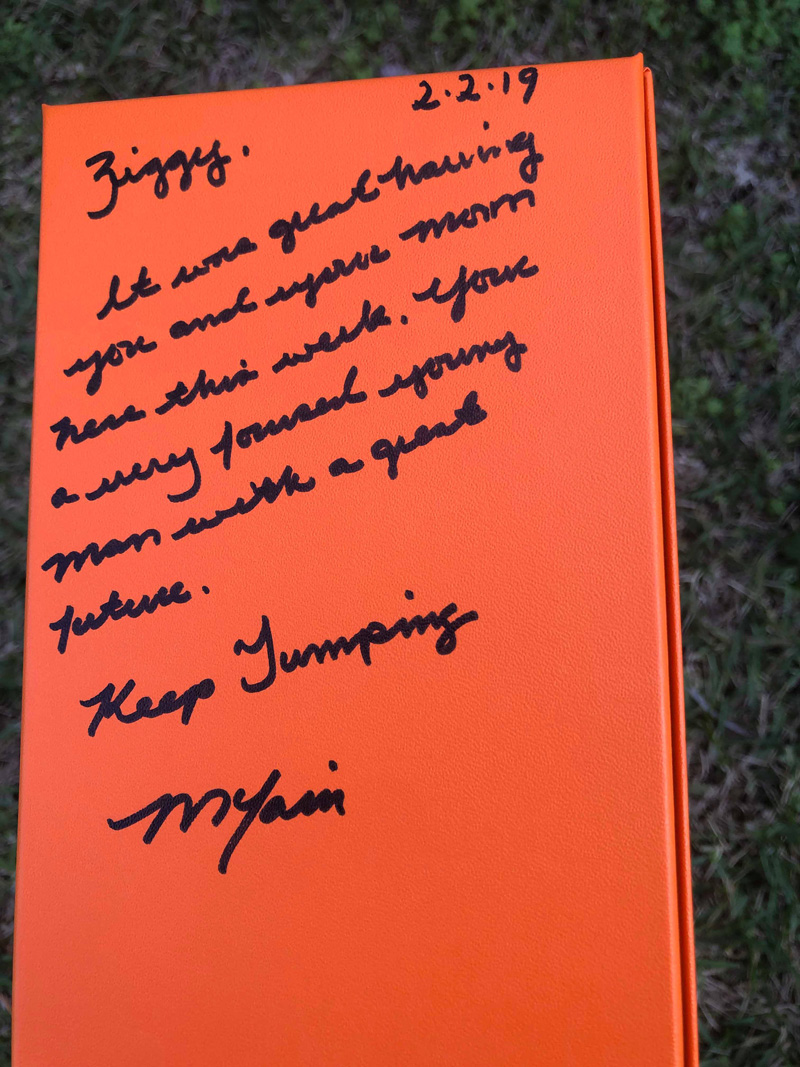 2.2.19
Ziggy.
It was great having
you and your mom
here this week. Your
a very focused young
man with a great
future.
Keep Jumping